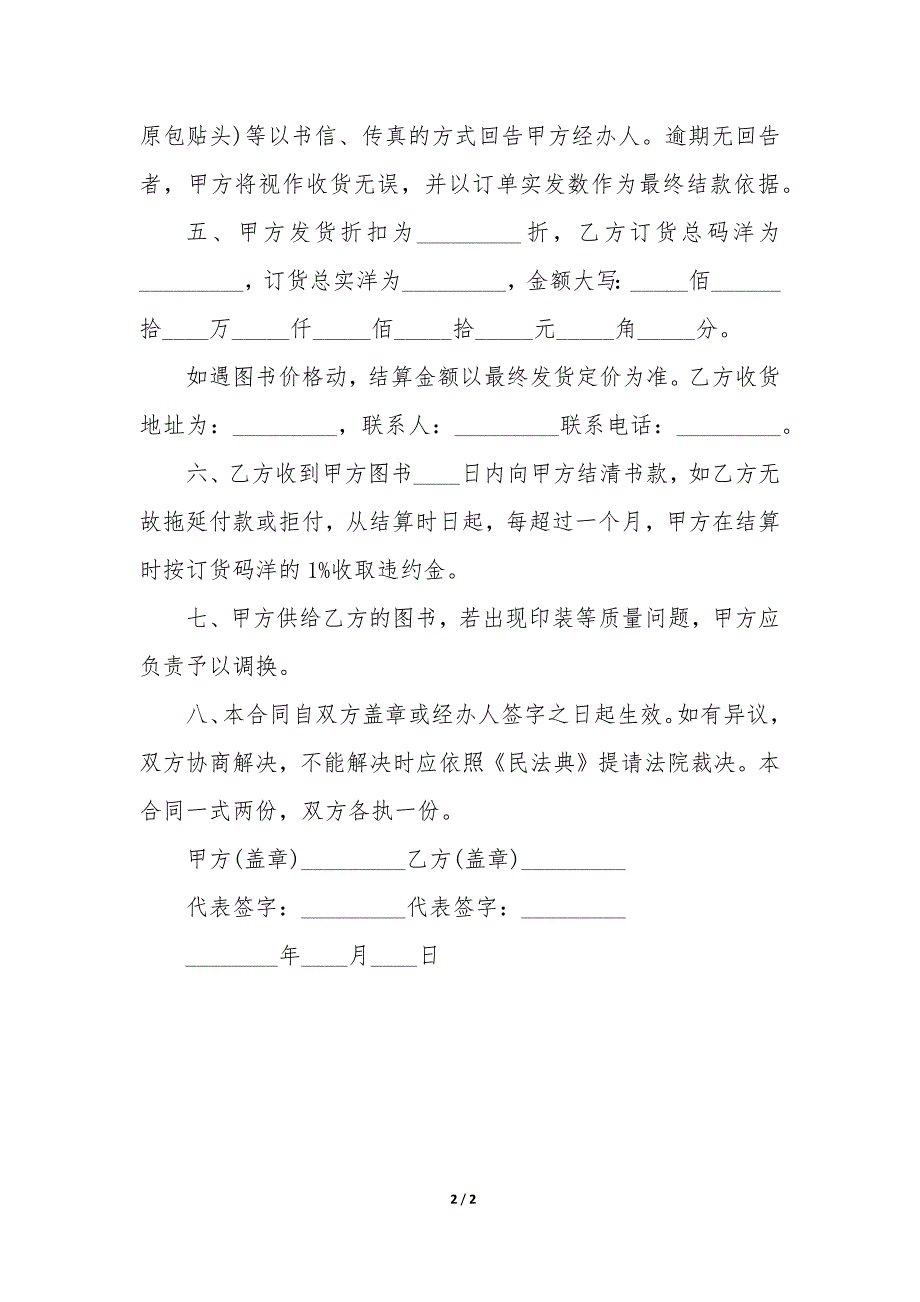 原包贴头)等以书信、传真的方式回告甲方经办人。逾期无回告
者，甲方将视作收货无误，并以订单实发数作为最终结款依据。
五、甲方发货折扣为_________折，乙方订货总码洋为
_________，订货总实洋为_________，金额大写：_____佰______
拾____万_____仟_____佰_____拾_____元_____角_____分。
如遇图书价格动，结算金额以最终发货定价为准。乙方收货
地址为：_________，联系人：_________联系电话：_________。
六、乙方收到甲方图书____日内向甲方结清书款，如乙方无
故拖延付款或拒付，从结算时日起，每超过一个月，甲方在结算
时按订货码洋的1%收取违约金。
七、甲方供给乙方的图书，若出现印装等质量问题，甲方应
负责予以调换。
八、本合同自双方盖章或经办人签字之日起生效。如有异议，
双方协商解决，不能解决时应依照《民法典》提请法院裁决。本
合同一式两份，双方各执一份。
甲方(盖章)_________乙方(盖章)_________
代表签字：_________代表签字：_________
________年____月____日
2 / 2